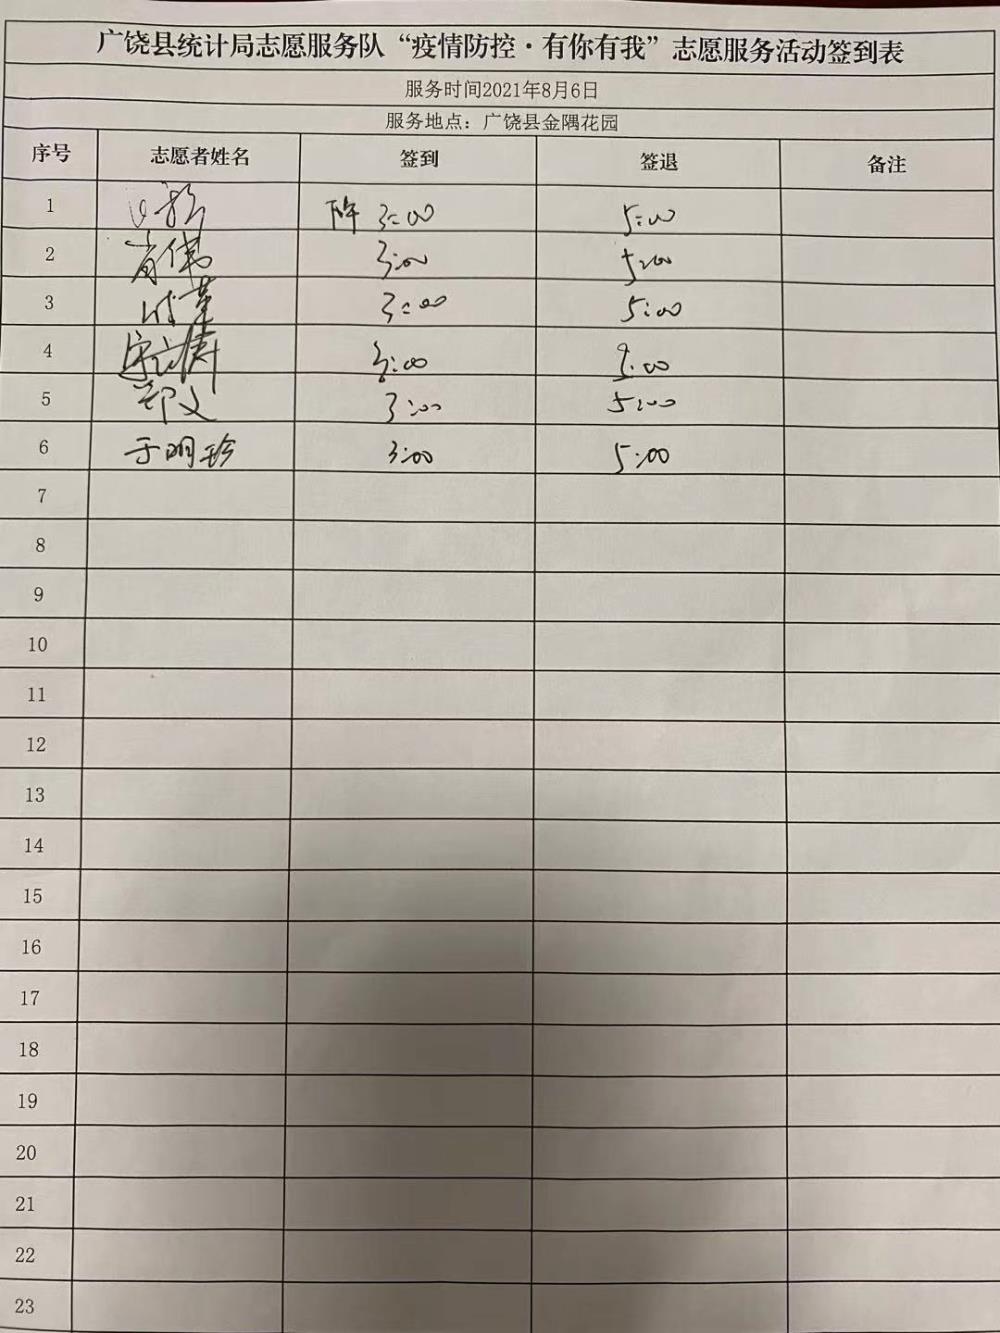 广饶县统计局志愿服务队“疫情防控·有你有我”志愿服务活动签到表
服务时间2021年8月6日
服务地点：广饶县金隅花园
序号 志愿者姓名 签到 签退 备注
1 下午 3:00 5:00
2 肖伟 3:00 5:00
3 3:00 5:00
4 3:00 5:00
5 郑文 3:00 5:00
6 于明珍 3:00 5:00
7
8
9
10
11
12
13
14
15
16
17
18
19
20
21
22
23